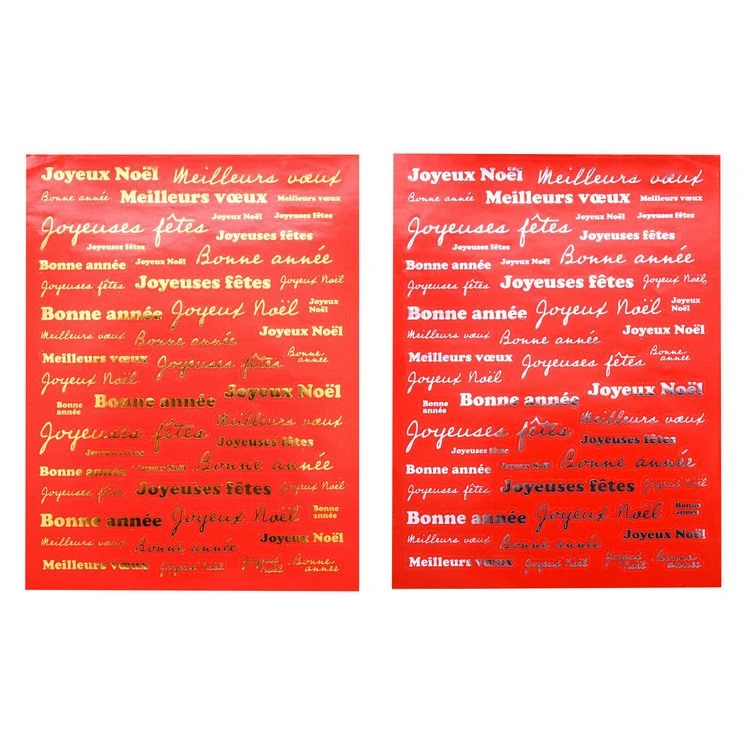 Joyeux Noël Meilleurs vœux
Bonne année Meilleurs vœux Meilleurs vœux
Joyeux Noël Joyeuses fêtes
Joyeuses fêtes Joyeuses fêtes
Joyeuses fêtes
Bonne année Joyeux Noël Bonne année
Joyeuses fêtes Joyeuses fêtes Joyeux Noël
Bonne année Joyeux Noël Joyeux Noël
Joyeux Noël
Meilleurs vœux Bonne année
Meilleurs vœux Joyeuses fêtes Bonne année
Joyeux Noël
Joyeux Noël
Bonne année Bonne année
Meilleurs vœux
Joyeuses fêtes Joyeuses fêtes
Joyeuses fêtes
Bonne année Joyeux Noël Bonne année
Joyeuses fêtes Joyeuses fêtes Joyeux Noël
Bonne année Joyeux Noël Bonne année
Meilleurs vœux Bonne année Joyeux Noël
Meilleurs vœux Joyeuses fêtes Joyeux Noël Bonne année
Joyeux Noël Meilleurs vœux
Bonne année Meilleurs vœux Meilleurs vœux
Joyeux Noël Joyeuses fêtes
Joyeuses fêtes Joyeuses fêtes
Joyeuses fêtes
Bonne année Joyeux Noël Bonne année
Joyeuses fêtes Joyeuses fêtes Joyeux Noël
Bonne année Joyeux Noël Joyeux Noël
Joyeux Noël
Meilleurs vœux Bonne année
Meilleurs vœux Joyeuses fêtes Bonne année
Joyeux Noël
Joyeux Noël
Bonne année Bonne année
Meilleurs vœux
Joyeuses fêtes Joyeuses fêtes
Joyeuses fêtes
Bonne année Joyeux Noël Bonne année
Joyeuses fêtes Joyeuses fêtes Joyeux Noël
Bonne année Joyeux Noël Bonne année
Meilleurs vœux Bonne année Joyeux Noël
Meilleurs vœux Joyeuses fêtes Joyeux Noël Bonne année